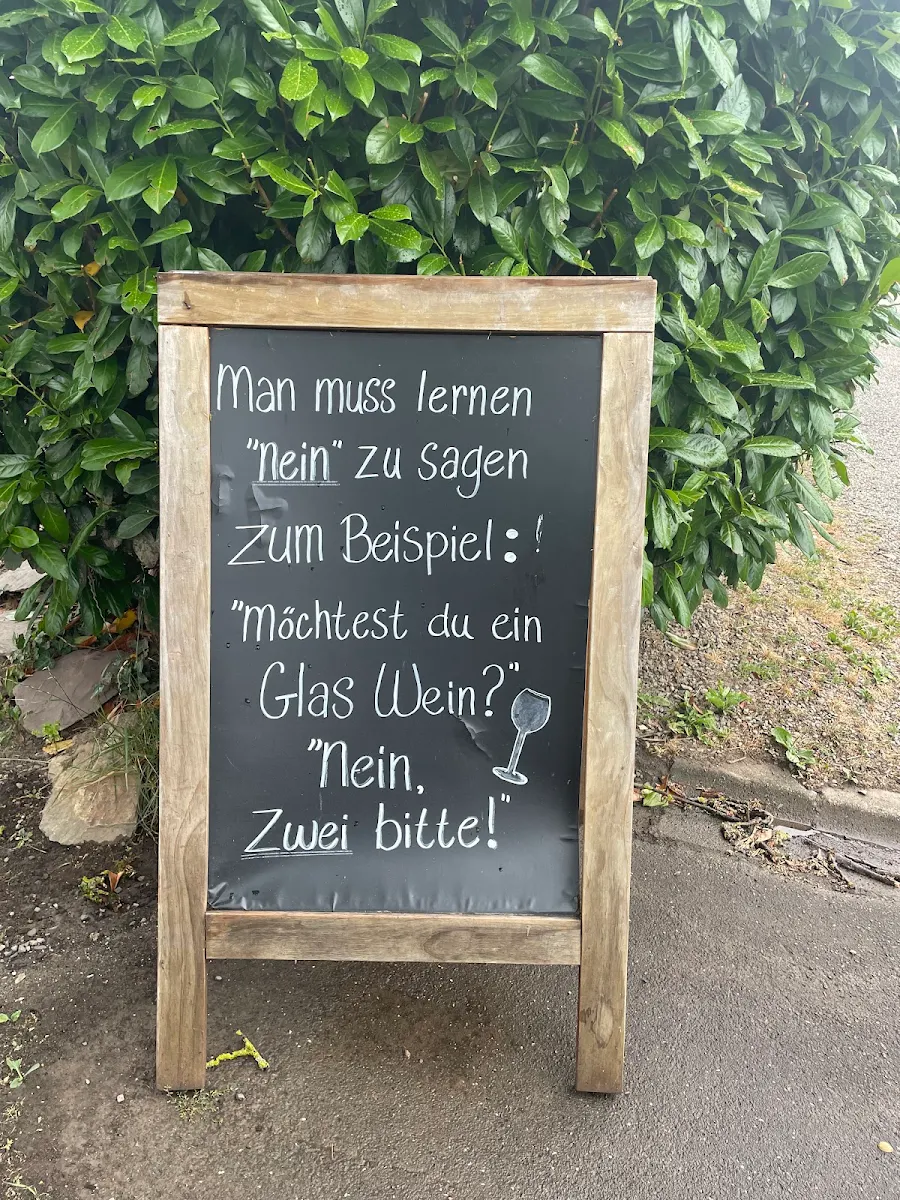 Man muss lernen
"Nein" zu sagen
zum Beispiel: !
"Möchtest du ein
Glas Wein?"
"Nein,
Zwei bitte!"